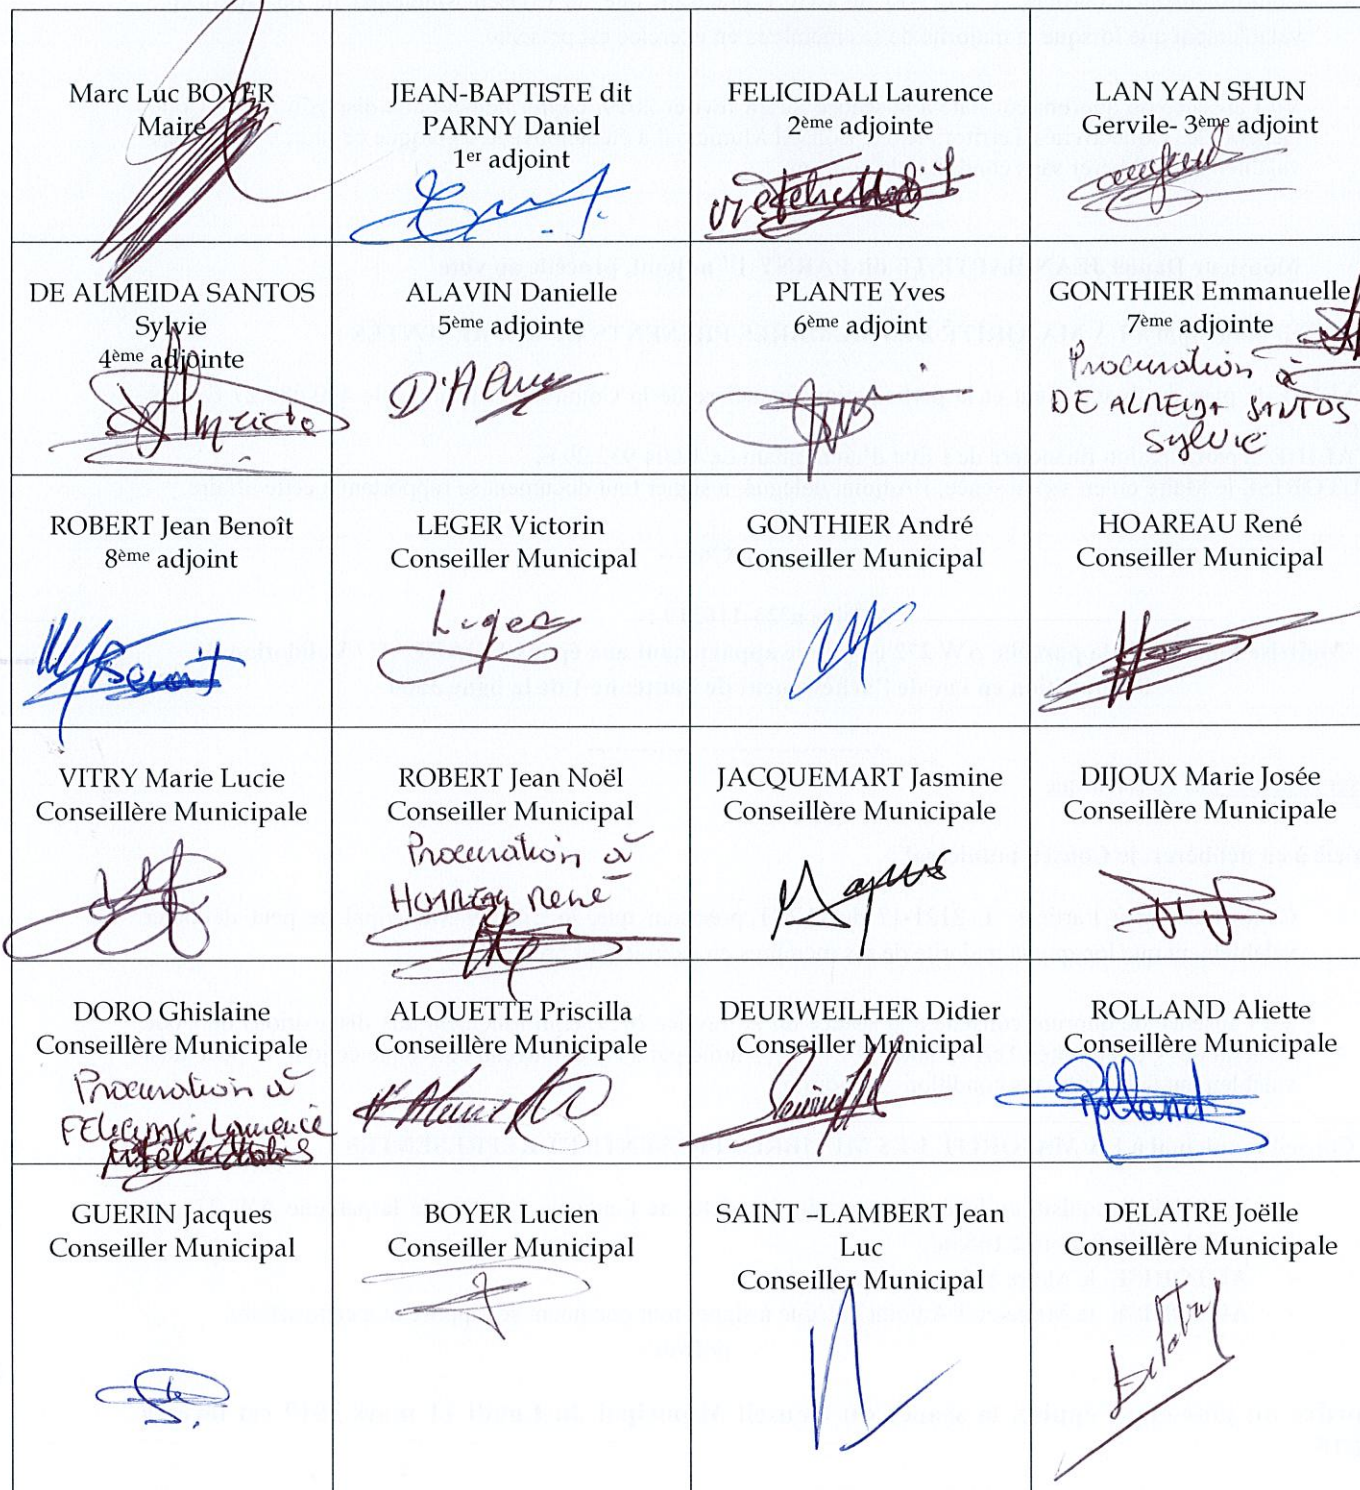 Marc Luc BOYER
Maire
JEAN-BAPTISTE dit
PARNY Daniel
1er adjoint
FELICIDALI Laurence
2ème adjointe
LAN YAN SHUN
Gervile- 3ème adjoint
DE ALMEIDA SANTOS
Sylvie
4ème adjointe
ALAVIN Danielle
5ème adjointe
PLANTE Yves
6ème adjoint
GONTHIER Emmanuelle
7ème adjointe
Procuration à
DE ALMEIDA SANTOS
Sylvie
ROBERT Jean Benoît
8ème adjoint
LEGER Victorin
Conseiller Municipal
Leger
GONTHIER André
Conseiller Municipal
HOAREAU René
Conseiller Municipal
VITRY Marie Lucie
Conseillère Municipale
ROBERT Jean Noël
Conseiller Municipal
Procuration à
HOAREAU René
JACQUEMART Jasmine
Conseillère Municipale
DIJOUX Marie Josée
Conseillère Municipale
DORO Ghislaine
Conseillère Municipale
Procuration à
FELICIDALI Laurence
ALOUETTE Priscilla
Conseillère Municipale
DEURWEILHER Didier
Conseiller Municipal
ROLLAND Aliette
Conseillère Municipale
Rolland
GUERIN Jacques
Conseiller Municipal
BOYER Lucien
Conseiller Municipal
SAINT -LAMBERT Jean
Luc
Conseiller Municipal
DELATRE Joëlle
Conseillère Municipale
Delatre